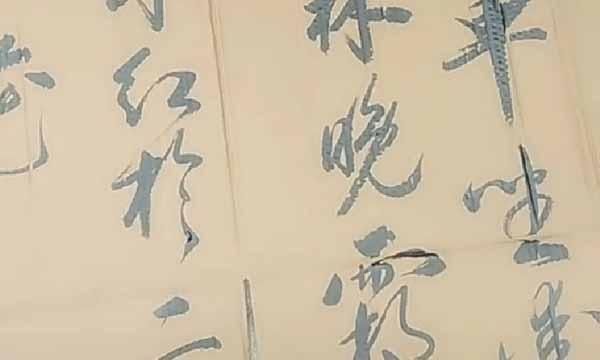 車坐愛
林晚霜
紅於二
花